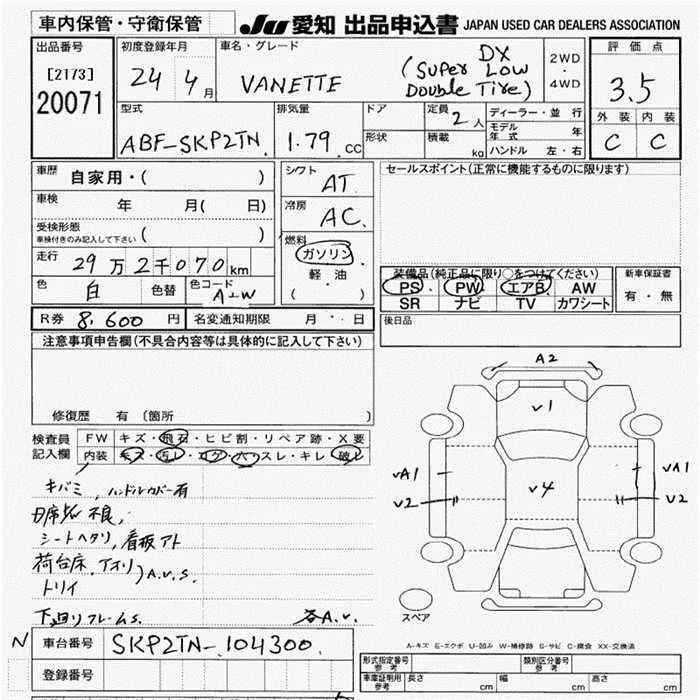 車内保管・守衛保管 JU 愛知 出品申込書 JAPAN USED CAR DEALERS ASSOCIATION
出品番号 初度登録年月 車名・グレード 評価点
[2173] 24 4月 VANETTE (Super Low Double Tire) DX 2WD・4WD 3.5
20071
型式 排気量 ドア 定員 2人 ディーラー・並行 外装 内装
ABF-SKP2TN 1.79 CC 形状 積載 kg モデル年式 年 C C
ハンドル 左・右
車歴 自家用・( ) シフト AT セールスポイント(正常に機能するものに限ります)
車検 年 月( 日) 冷房 AC
受検形態 ( )
車検付きのみ記入して下さい
燃料 ガソリン
走行 29万2千070km 軽油
( )
装備品(純正品に限り○をつけてください) 新車保証書
色 白 色替 色コード A-W PS PW エアB AW 有・無
SR ナビ TV カワシート
R券 8,600円 名変通知期限 月・・日 後日品
注意事項申告欄(不具合内容等は具体的に記入して下さい)
修復歴 有 (箇所 )
検査員記入欄 FW キズ・飛石・ヒビ割・リペア跡・X要
内装 キズ・汚レ・コゲ・穴・スレ・キレ・破レ
キバミ, ハンドルカバー有
不良,
シートヘタリ, 看板アト
荷台床, アオリ
トリイ )A.U.S.
下廻りフレームS. 各A.U.
A2
V1
VA1 VA1
V2 V4 V2
スペア
A-キズ E-エクボ U-凹み W-補修跡 S-サビ C-腐食 XX-交換済
N 車台番号 SKP2TN-104300
登録番号
形式指定番号 参考 類別区分番号 参考
車庫証明用 参考 長さ cm 幅 cm 高さ cm